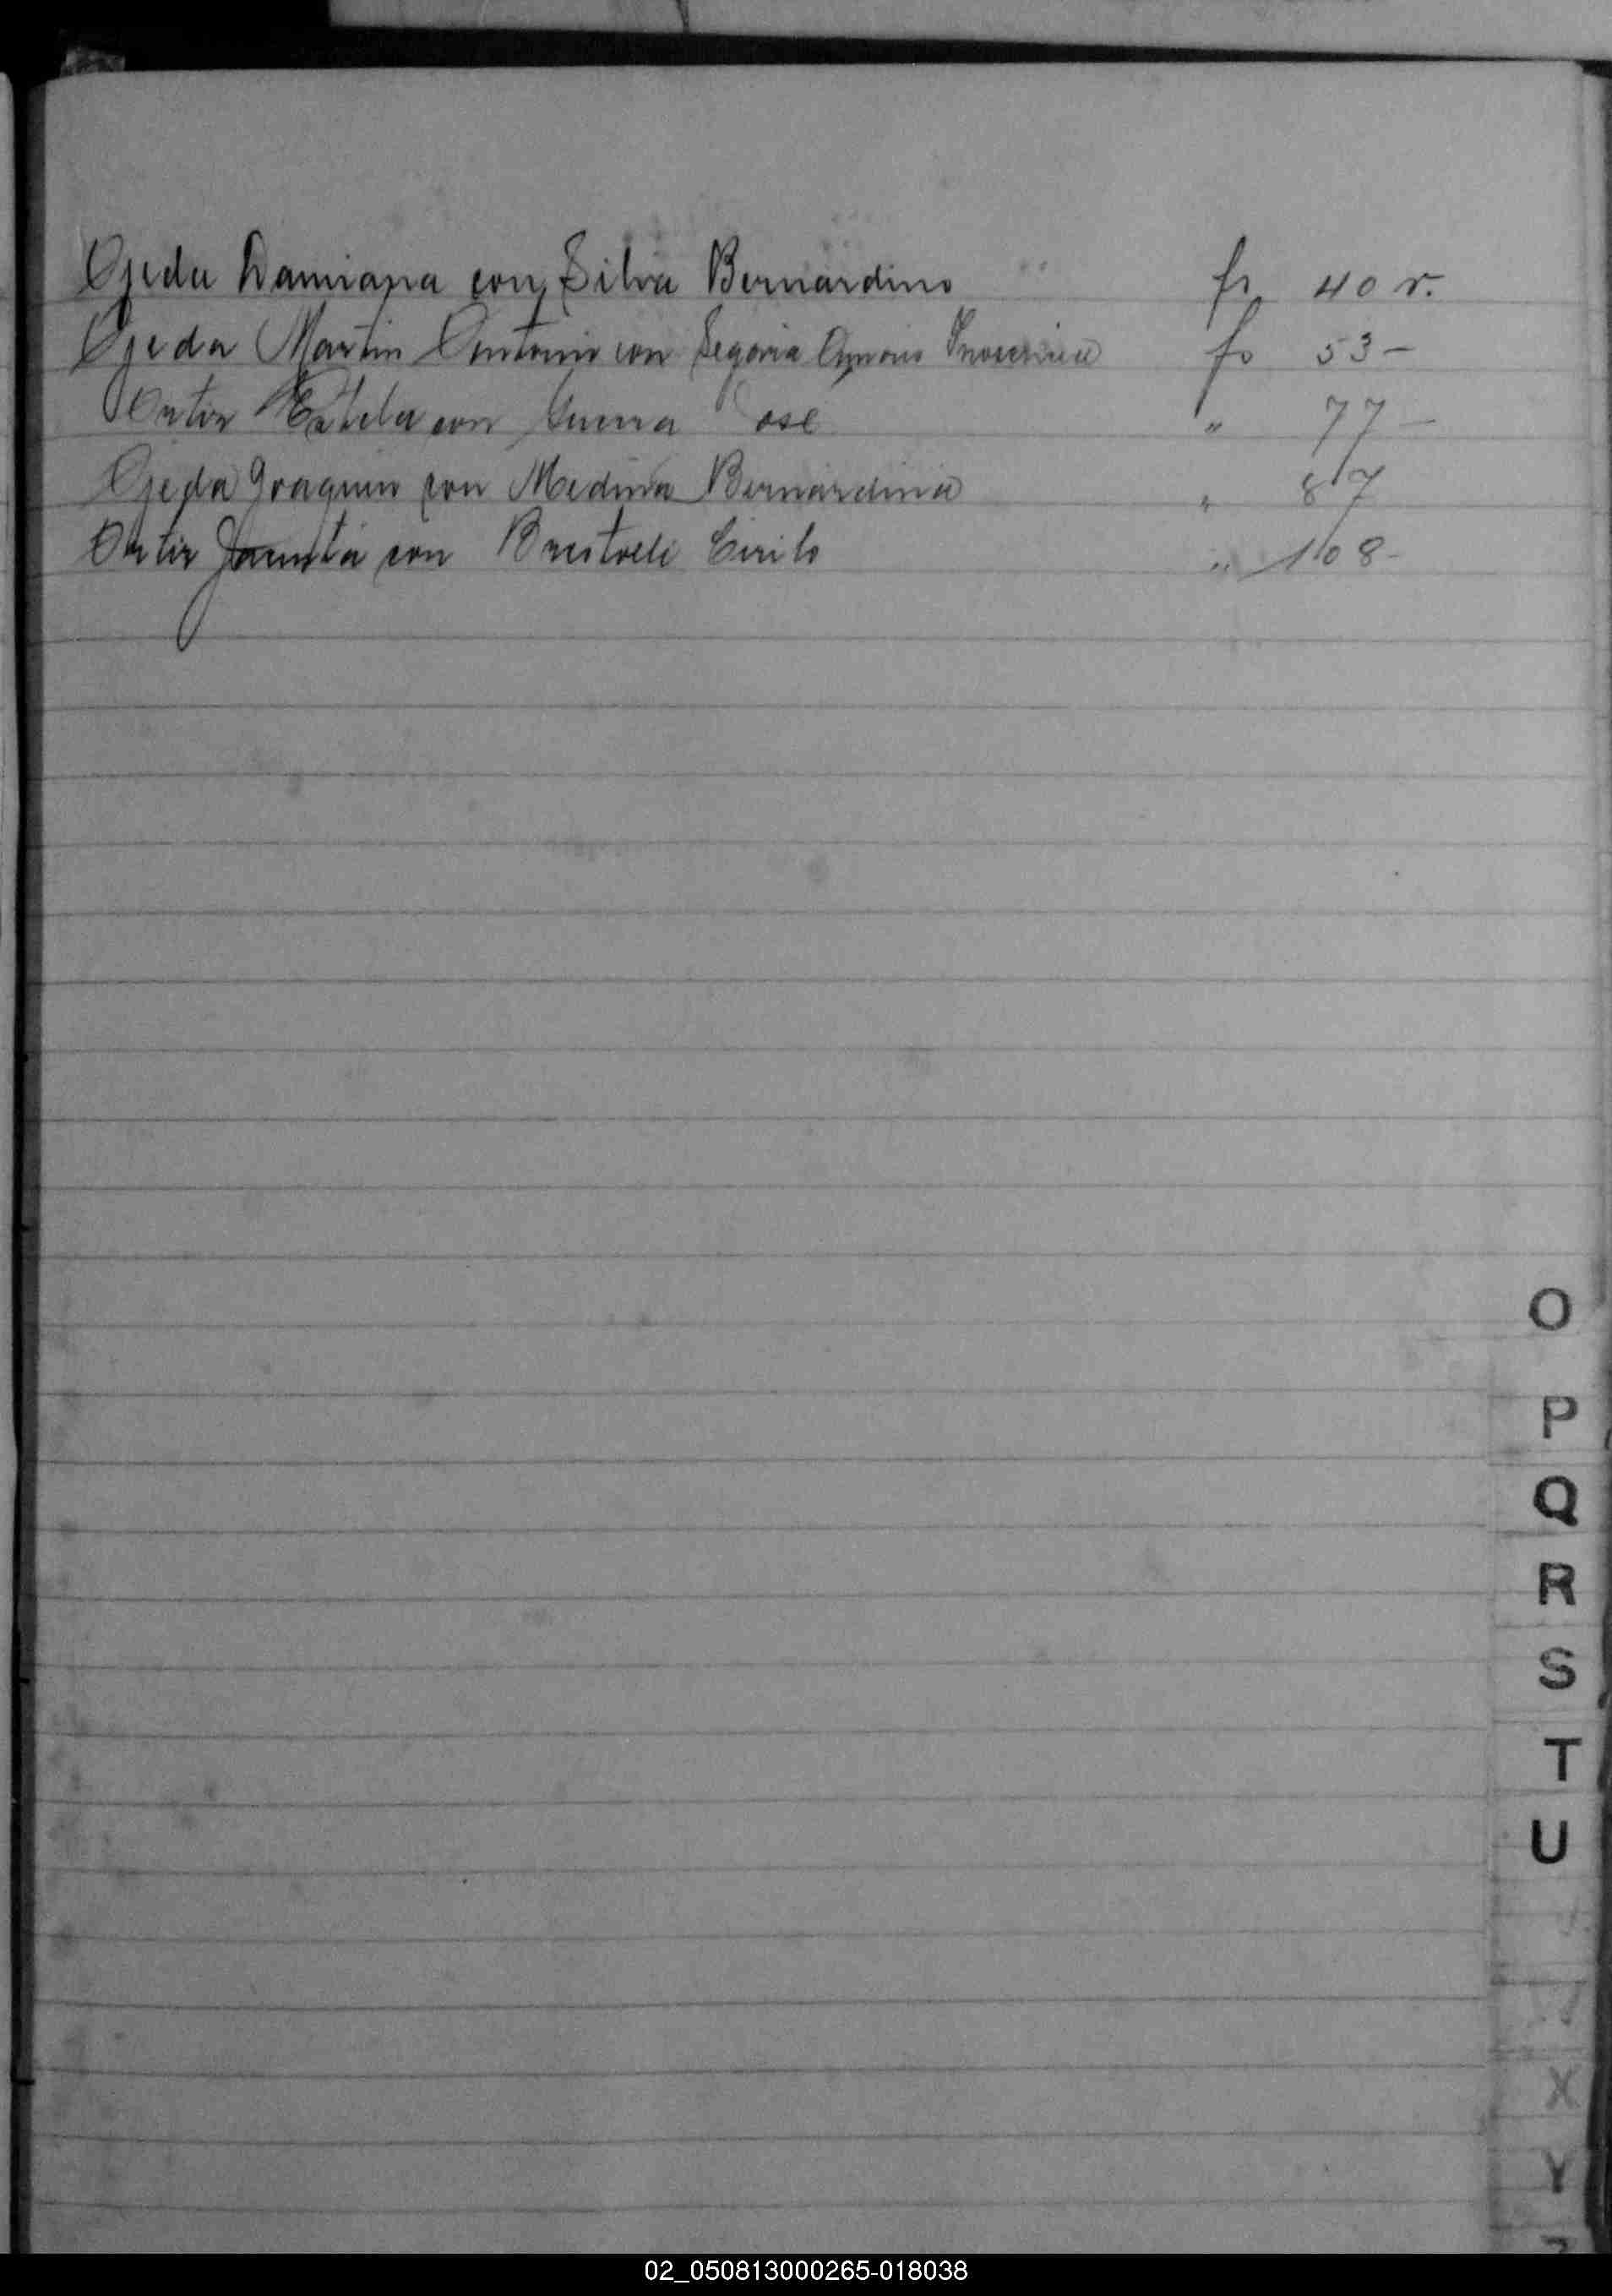 Ojeda Damiana con Silva Bernardino fs 40 v.
Ojeda Martin Antonio con Segovia fo 53 -
Ortiz Estela con " 77 -
Ojeda Joaquin con Medina Bernardina " 87
Ortiz Jacinta con Cirilo " 108 -
O
P
Q
R
S
T
U
X
Y
02_050813000265-018038